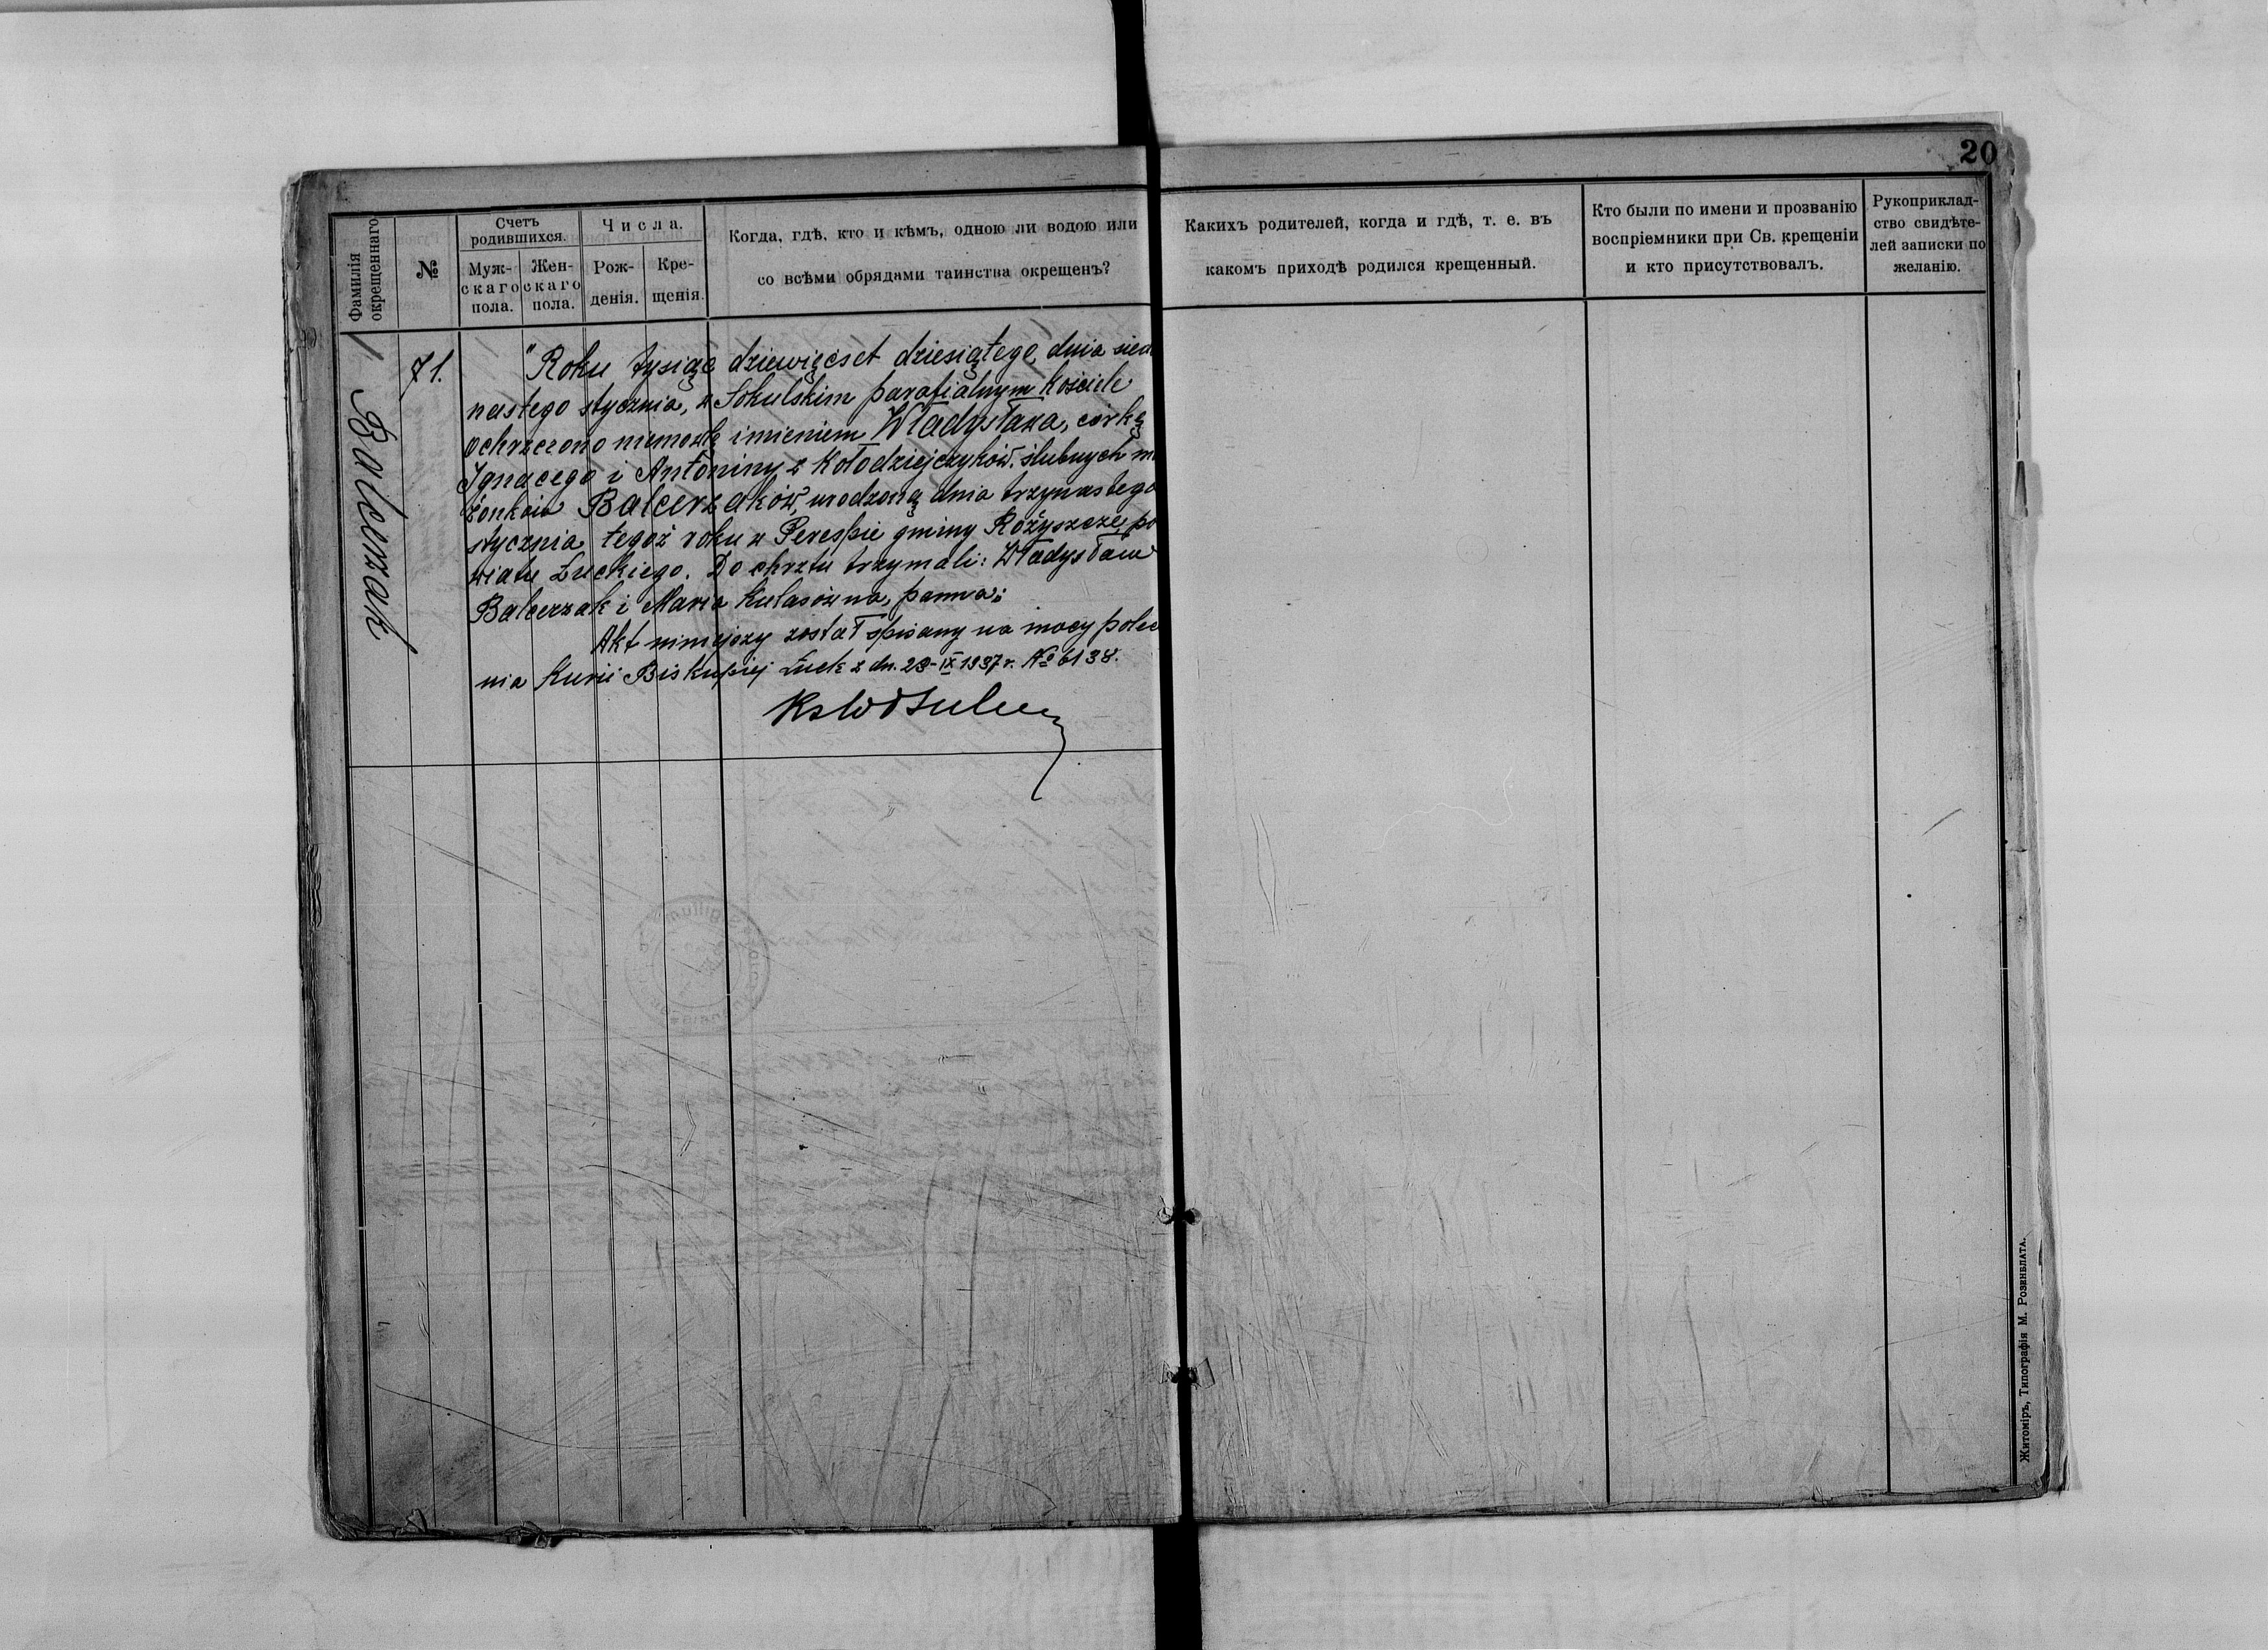 20
Фамилія окрещеннаго
№
Счетъ родившихся.
Муж-
скаго
пола.
Жен-
скаго
пола.
Числа.
Рож-
денія.
Кре-
щенія.
Когда, гдѣ, кто и кѣмъ, одною ли водою или
со всѣми обрядами таинства окрещенъ?
Какихъ родителей, когда и гдѣ, т. е. въ
какомъ приходѣ родился крещенный.
Кто были по имени и прозванію
воспріемники при Св. крещеніи
и кто присутствовалъ.
Рукоприклад-
ство свидѣте-
лей записки по
желанію.
Balcerzak
71.
"Roku tysiąc dziewięćset dziesiątego, dnia sied
nastego stycznia, w Sokulskim parafialnym kościele
ochrzczono niemowlę imieniem Władysława, córkę
Ignacego i Antoniny z Kołodziejczyków, ślubnych m
żonków Balcerzaków, urodzoną dnia trzynastego
stycznia tegoż roku w Perespie gminy Rożyszcze, po
wiatu Łuckiego. Do chrztu trzymali: Władysław
Balcerzak i Maria Kulasówna, panna;
Akt niniejszy został spisany na mocy polec
nia Kurii Biskupiej Łuck z dn. 23-IX 1937 r. № 6138.
Житоміръ, Типографія М. Розенблата.